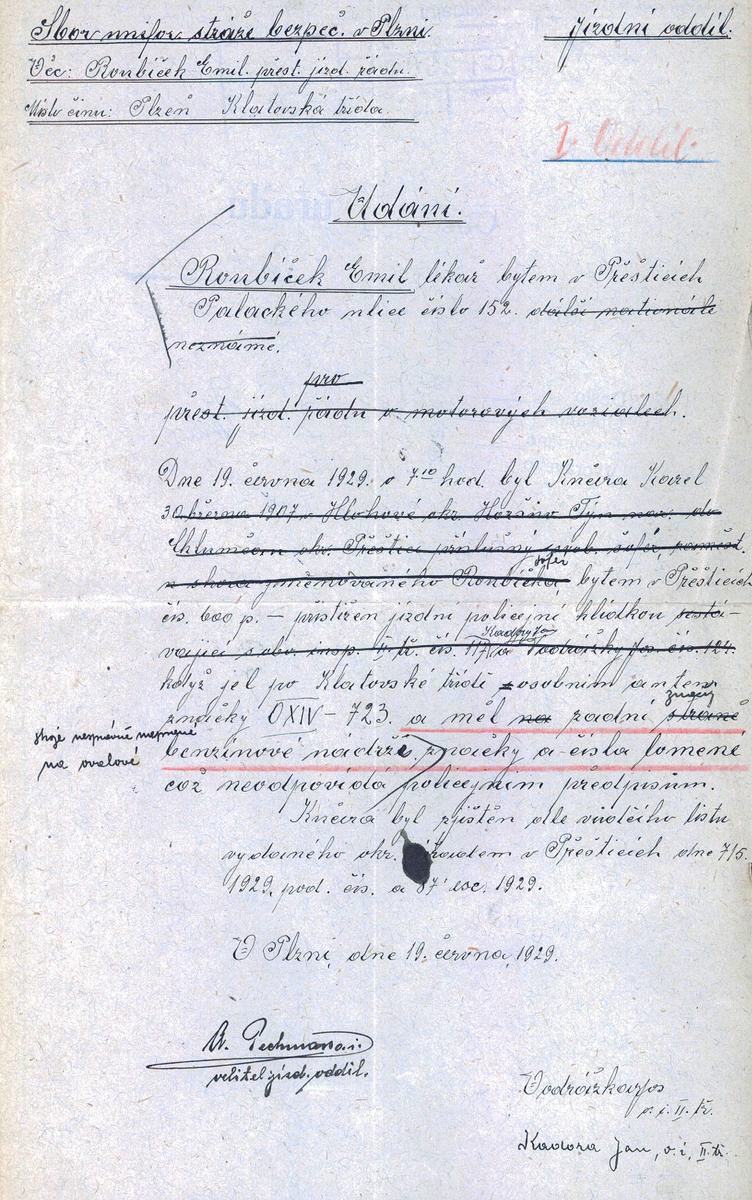 Sbor unifor. stráže bezpeč. v Plzni. Jízdní oddíl.
Věc: Roubíček Emil. přest. jízd. řádu.
Místo činu: Plzeň Klatovská třída.
I. Oddíl.
Udání.
Roubíček Emil lékař bytem v Přešticích
Palackého ulice číslo 152. další nationále
neznámé.
pro
přest. jízd. řádu v motorových vozidlech.
Dne 19. června 1929. o 710 hod. byl Knčira Karel
30 března 1907 v Hlohové okr. Horšův Týn nar. do
Chlumčan okr. Přeštice příslušný svob. šofér, zaměst.
šofér
u shora jmenovaného Roubíčka, bytem v Přešticích
čís. 600 p. — přistižen jízdní policejní hlídkou sestá-
vající z insp. II. tř. čís. 117 a Vodrážky Jos. čís. 124.
když jel po Klatovské třídě s osobním autem
značky
značky O XIV – 723. a měl na zadní straně
stroje nesprávně namísto
benzinové nádrže. značky a čísla lomené
na oválové
což neodpovídá policejním předpisům.
Knčira byl zjištěn dle vůdčího listu
vydaného okr. úřadem v Přešticích dne 7/5.
1929. pod. čís. a 87 esc. 1929.
V Plzni, dne 19. června, 1929.
A. Pechman
velitel jízd. oddíl.
Vodrážka Jos
v. i. II. tř.
Kadora Jan, v. i. II. tř.